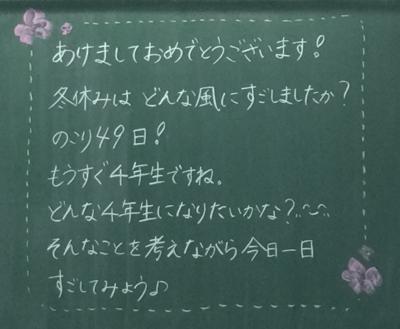 あけましておめでとうございます!
冬休みは どんな風にすごしましたか?
のこり49日!
もうすぐ4年生ですね。
どんな4年生になりたいかな?
そんなことを考えながら今日一日
すごしてみよう♪